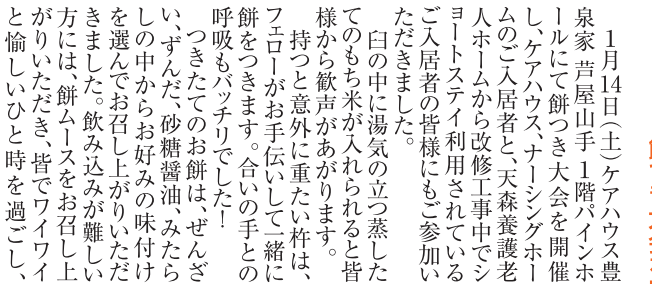 1月14日（土）ケアハウス豊
泉家 芦屋山手 1階パインホ
ールにて餅つき大会を開催
し、ケアハウス、ナーシングホー
ムのご入居者と、天森養護老
人ホームから改修工事中でシ
ョートステイ利用されている
ご入居者の皆様にもご参加い
ただきました。
　臼の中に湯気の立つ蒸した
てのもち米が入れられると皆
様から歓声があがります。
　持つと意外に重たい杵は、
フェローがお手伝いして一緒に
餅をつきます。合いの手との
呼吸もバッチリでした！
　つきたてのお餅は、ぜんざ
い、ずんだ、砂糖醤油、みたら
しの中からお好みの味付け
を選んでお召し上がりいただ
きました。飲み込みが難しい
方には、餅ムースをお召し上
がりいただき、皆でワイワイ
と愉しいひと時を過ごし、